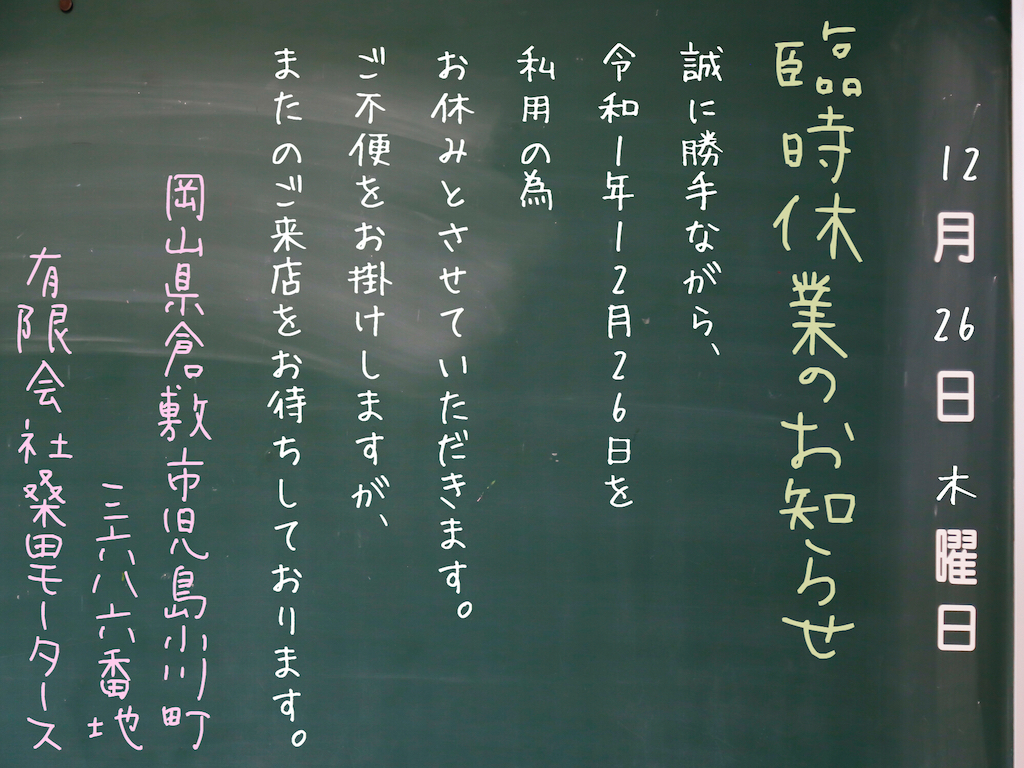 12月26日 木曜日
臨時休業のお知らせ
誠に勝手ながら、
令和1年12月26日を
私用の為
お休みとさせていただきます。
ご不便をお掛けしますが、
またのご来店をお待ちしております。
岡山県倉敷市児島小川町
三六八六番地
有限会社桑田モータース